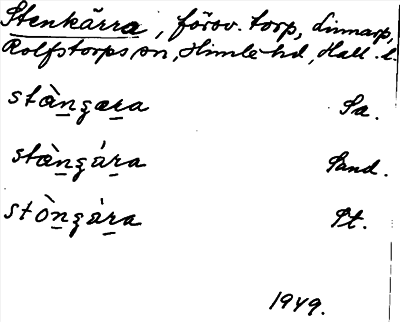 Stenkärra, förov. torp, Linnarp,
Rolfstorps sn, Himle hd, Hall. l.
stæ̀n̲ʒæra Sa.
stæ̀n̲ʒár̲a Sand.
stòn̲ʒár̲a St.
1949.